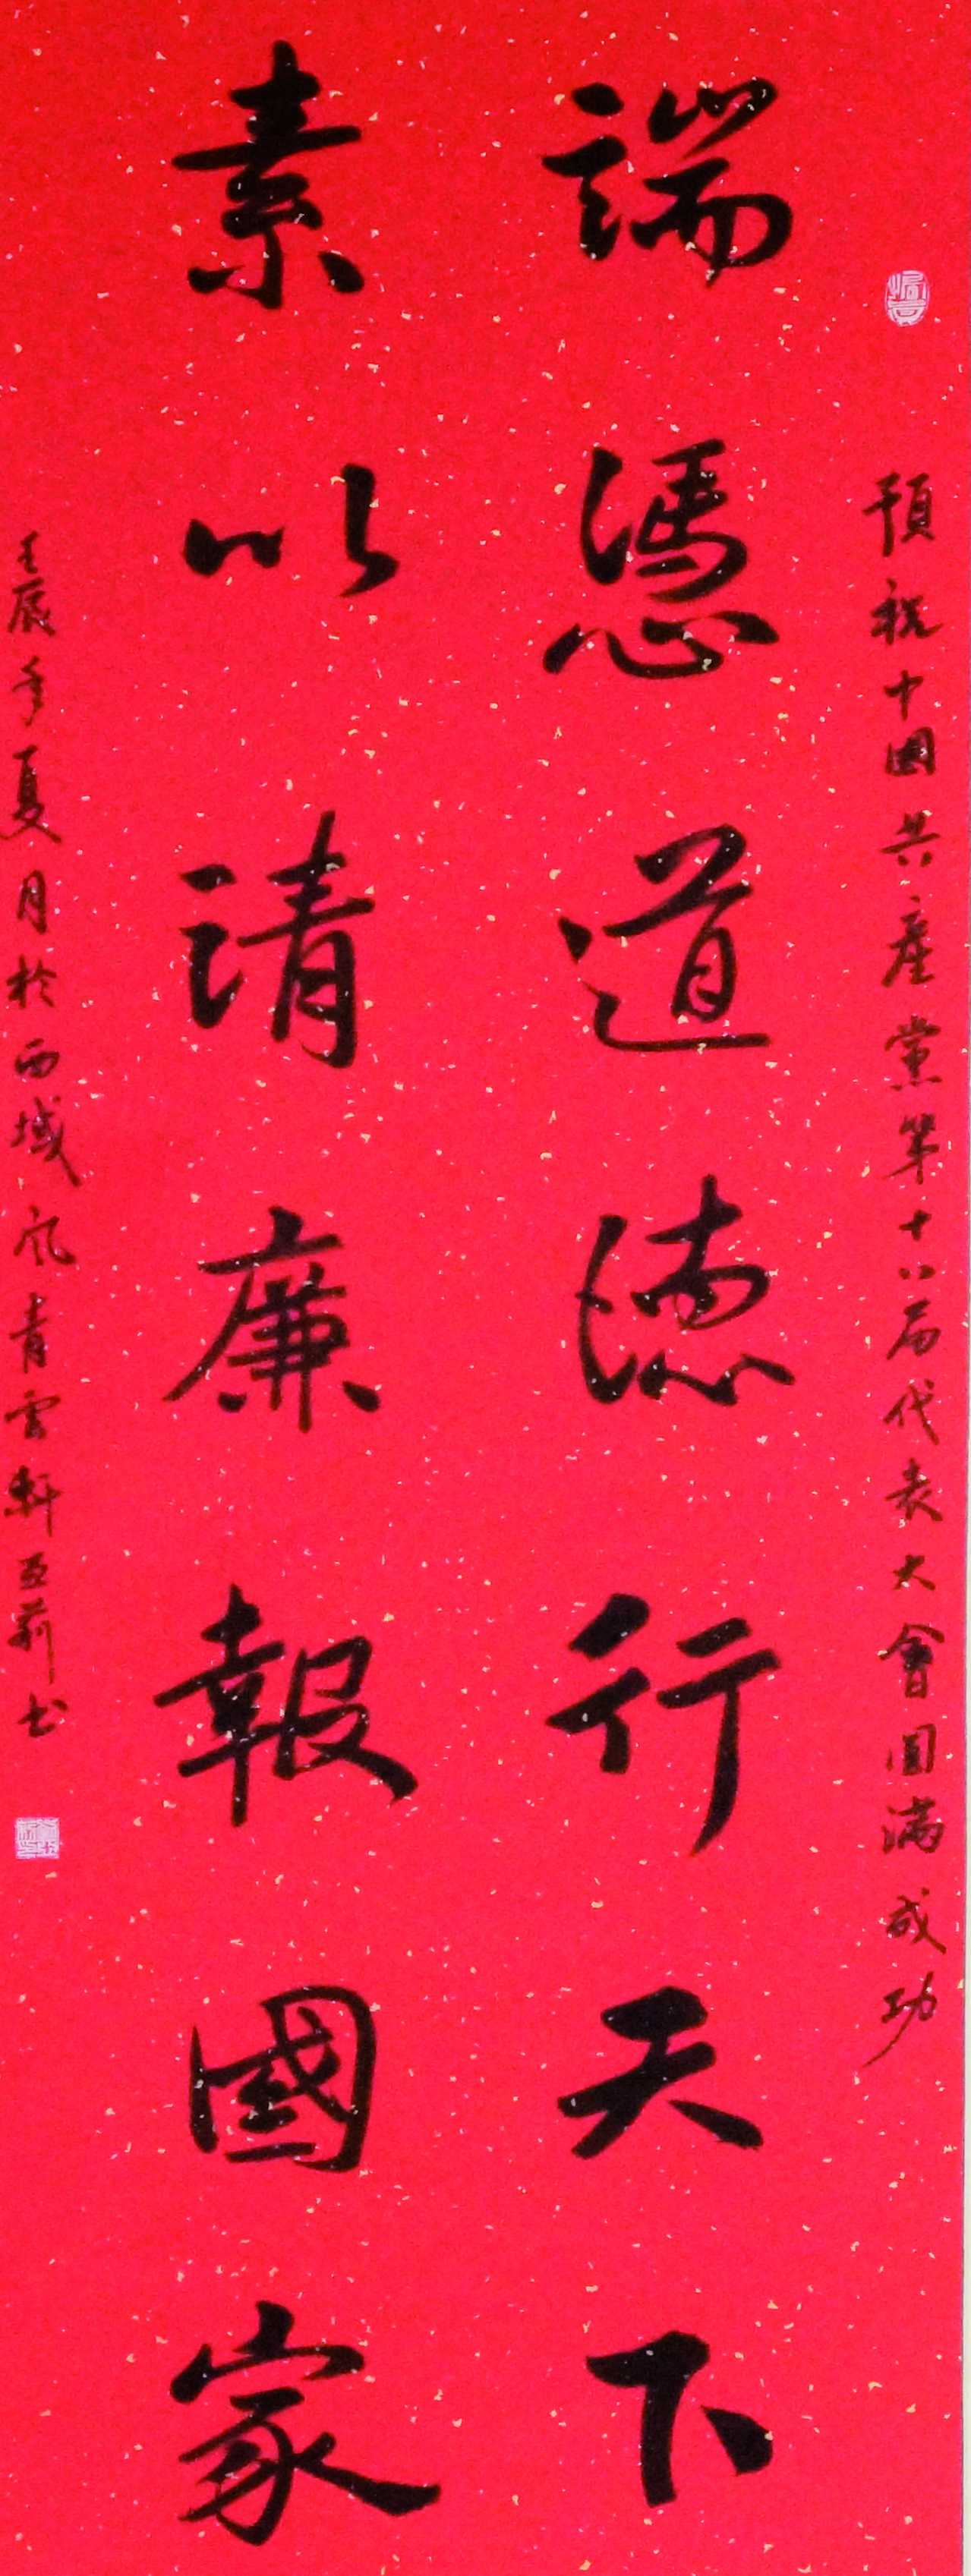 預祝中國共產黨第十八屆代表大會圓滿成功
端憑道德行天下
素以清廉報國家
壬辰年夏月於西域 青雲軒 書